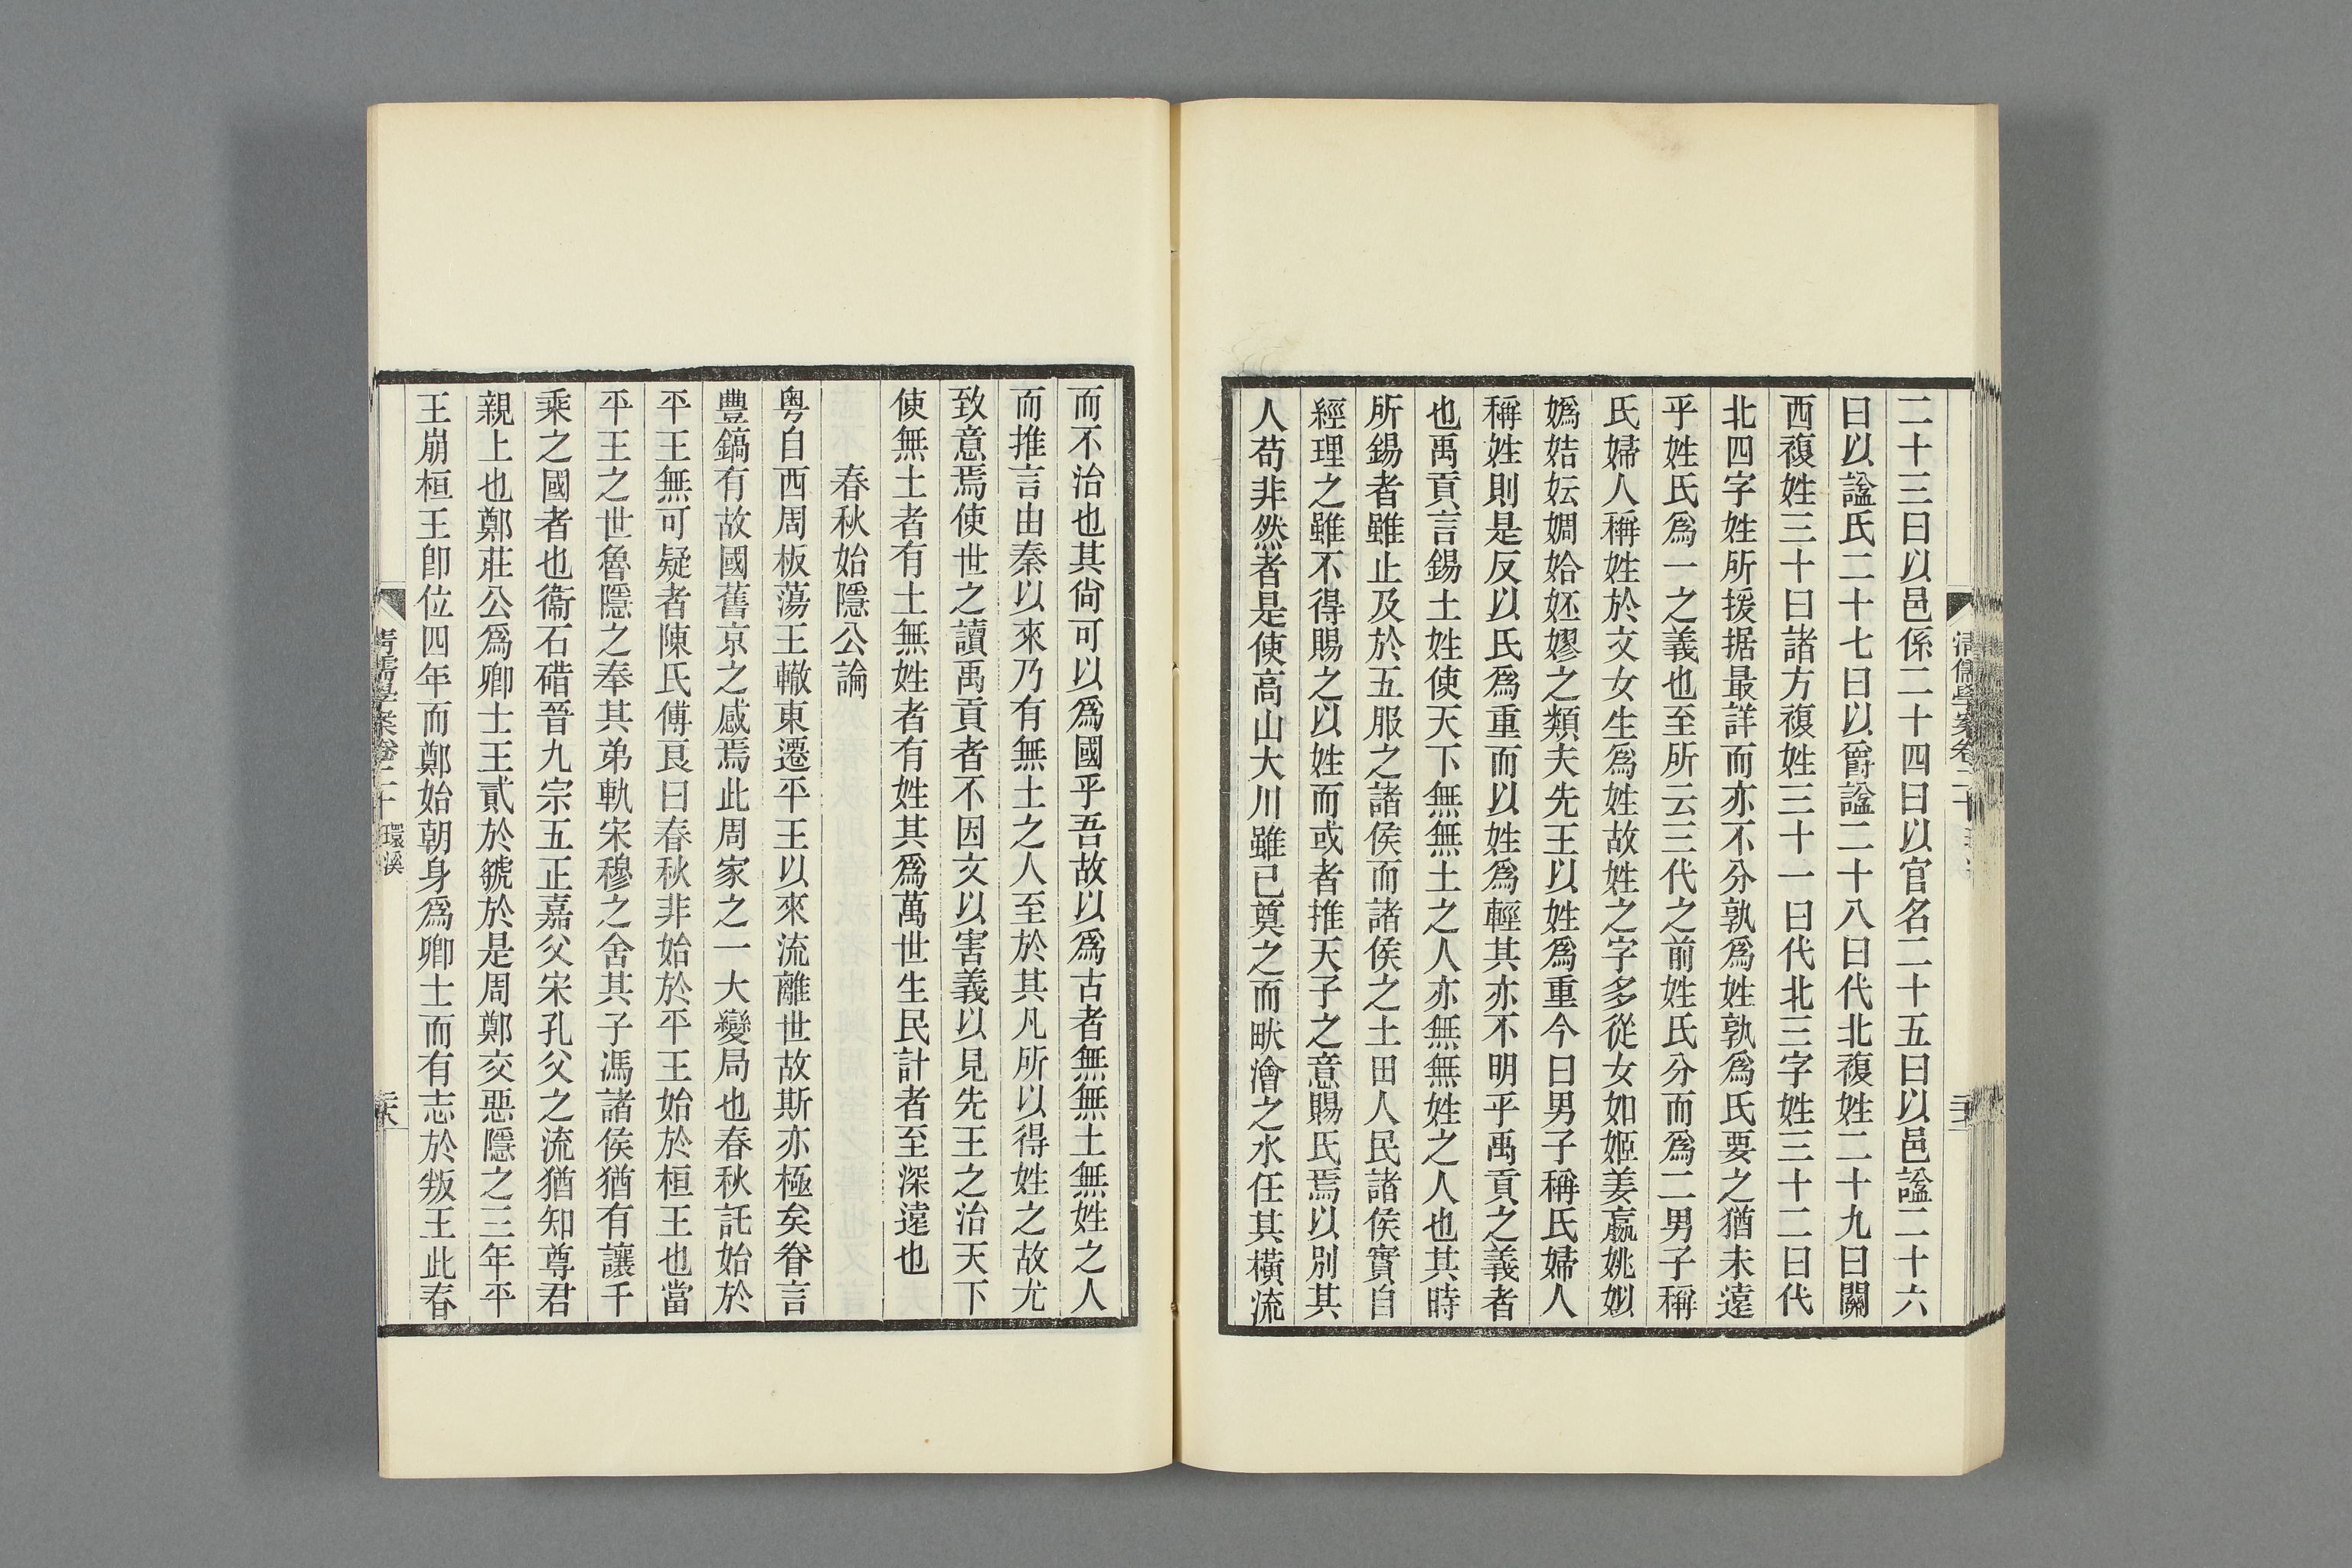 二十三曰以邑係二十四曰以官名二十五曰以邑諡二十六
曰以諡氏二十七曰以爵諡二十八曰代北複姓二十九曰關
西複姓三十曰諸方複姓三十一曰代北三字姓三十二曰代
北四字姓所援据最詳而亦不分孰爲姓孰爲氏要之猶未遠
乎姓氏爲一之義也至所云三代之前姓氏分而爲二男子稱
氏婦人稱姓於文女生爲姓故姓之字多從女如姬姜嬴姚姒
嬀姞妘婤姶㛅嫪之類夫先王以姓爲重今曰男子稱氏婦人
稱姓則是反以氏爲重而以姓爲輕其亦不明乎禹貢之義者
也禹貢言錫土姓使天下無無土之人亦無無姓之人也其時
所錫者雖止及於五服之諸侯而諸侯之土田人民諸侯實自
經理之雖不得賜之以姓而或者推天子之意賜氏焉以別其
人苟非然者是使高山大川雖已奠之而畎澮之水任其橫流
而不治也其尙可以爲國乎吾故以爲古者無無土無姓之人
而推言由秦以來乃有無土之人至於其凡所以得姓之故尤
致意焉使世之讀禹貢者不因文以害義以見先王之治天下
使無土者有土無姓者有姓其爲萬世生民計者至深遠也
春秋始隱公論
粵自西周板蕩王轍東遷平王以來流離世故斯亦極矣眷言
豐鎬有故國舊京之感焉此周家之一大變局也春秋託始於
平王無可疑者陳氏傅良曰春秋非始於平王始於桓王也當
平王之世魯隱之奉其弟軌宋穆之舍其子馮諸侯猶有讓千
乘之國者也衞石碏晉九宗五正嘉父宋孔父之流猶知尊君
親上也鄭莊公爲卿士王貳於虢於是周鄭交惡隱之三年平
王崩桓王卽位四年而鄭始朝身爲卿士而有志於叛王此春
清儒學案卷二十 環溪